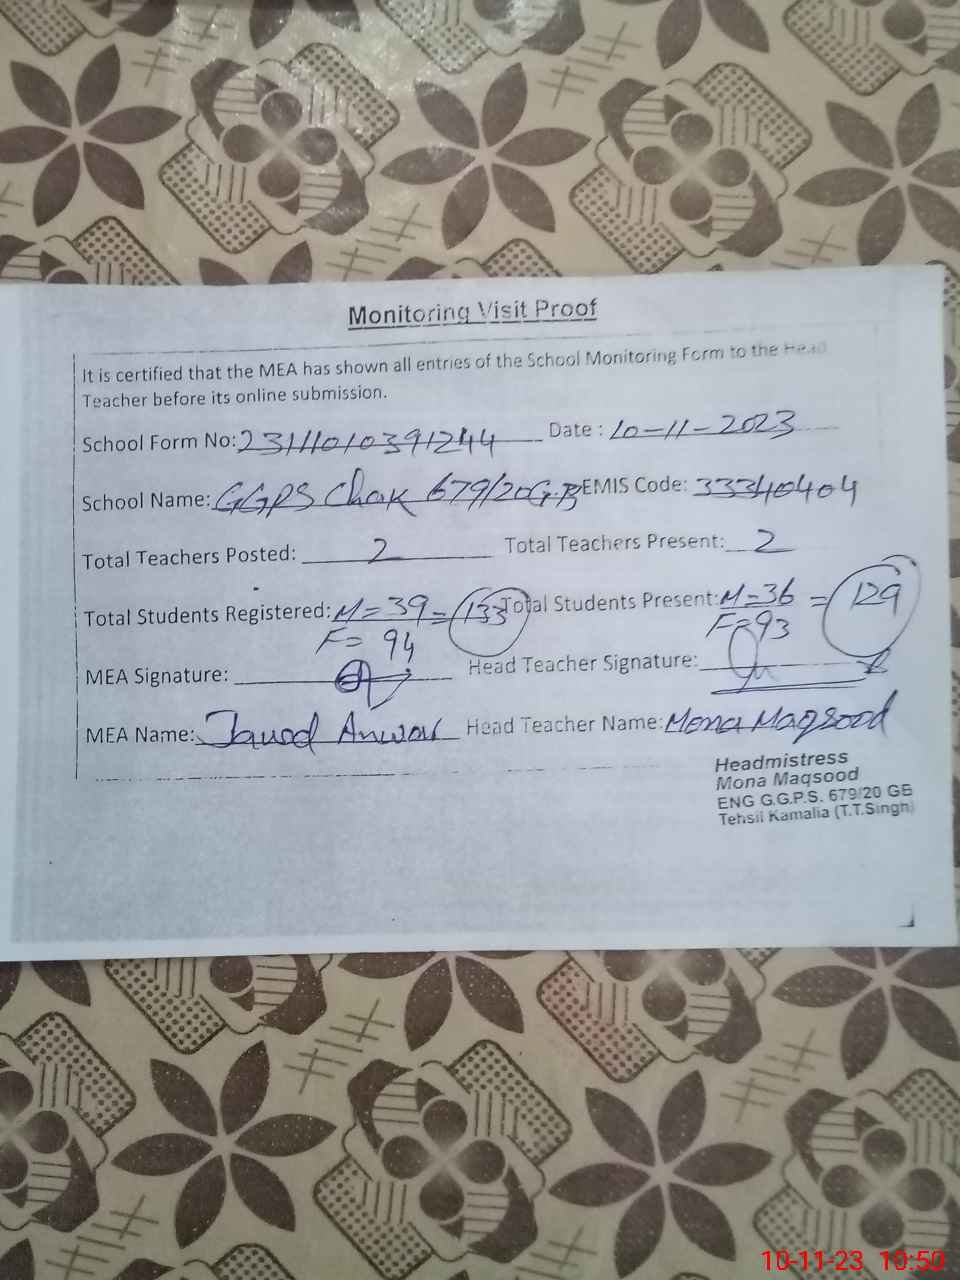 Monitoring Visit Proof
It is certified that the MEA has shown all entries of the School Monitoring Form to the Head
Teacher before its online submission.
School Form No: 23111010391244 Date : 10-11-2023
School Name: GGPS Chak 679/20G.B EMIS Code: 33340404
Total Teachers Posted: 2 Total Teachers Present: 2
Total Students Registered: M=39 = 133 Total Students Present: M=36 = 129
F= 94 F=93
MEA Signature: Head Teacher Signature:
MEA Name: Jawad Anwar Head Teacher Name: Mona Maqsood
Headmistress
Mona Maqsood
ENG G.G.P.S. 679/20 GB
Tehsil Kamalia (T.T.Singh)
10-11-23 10:50